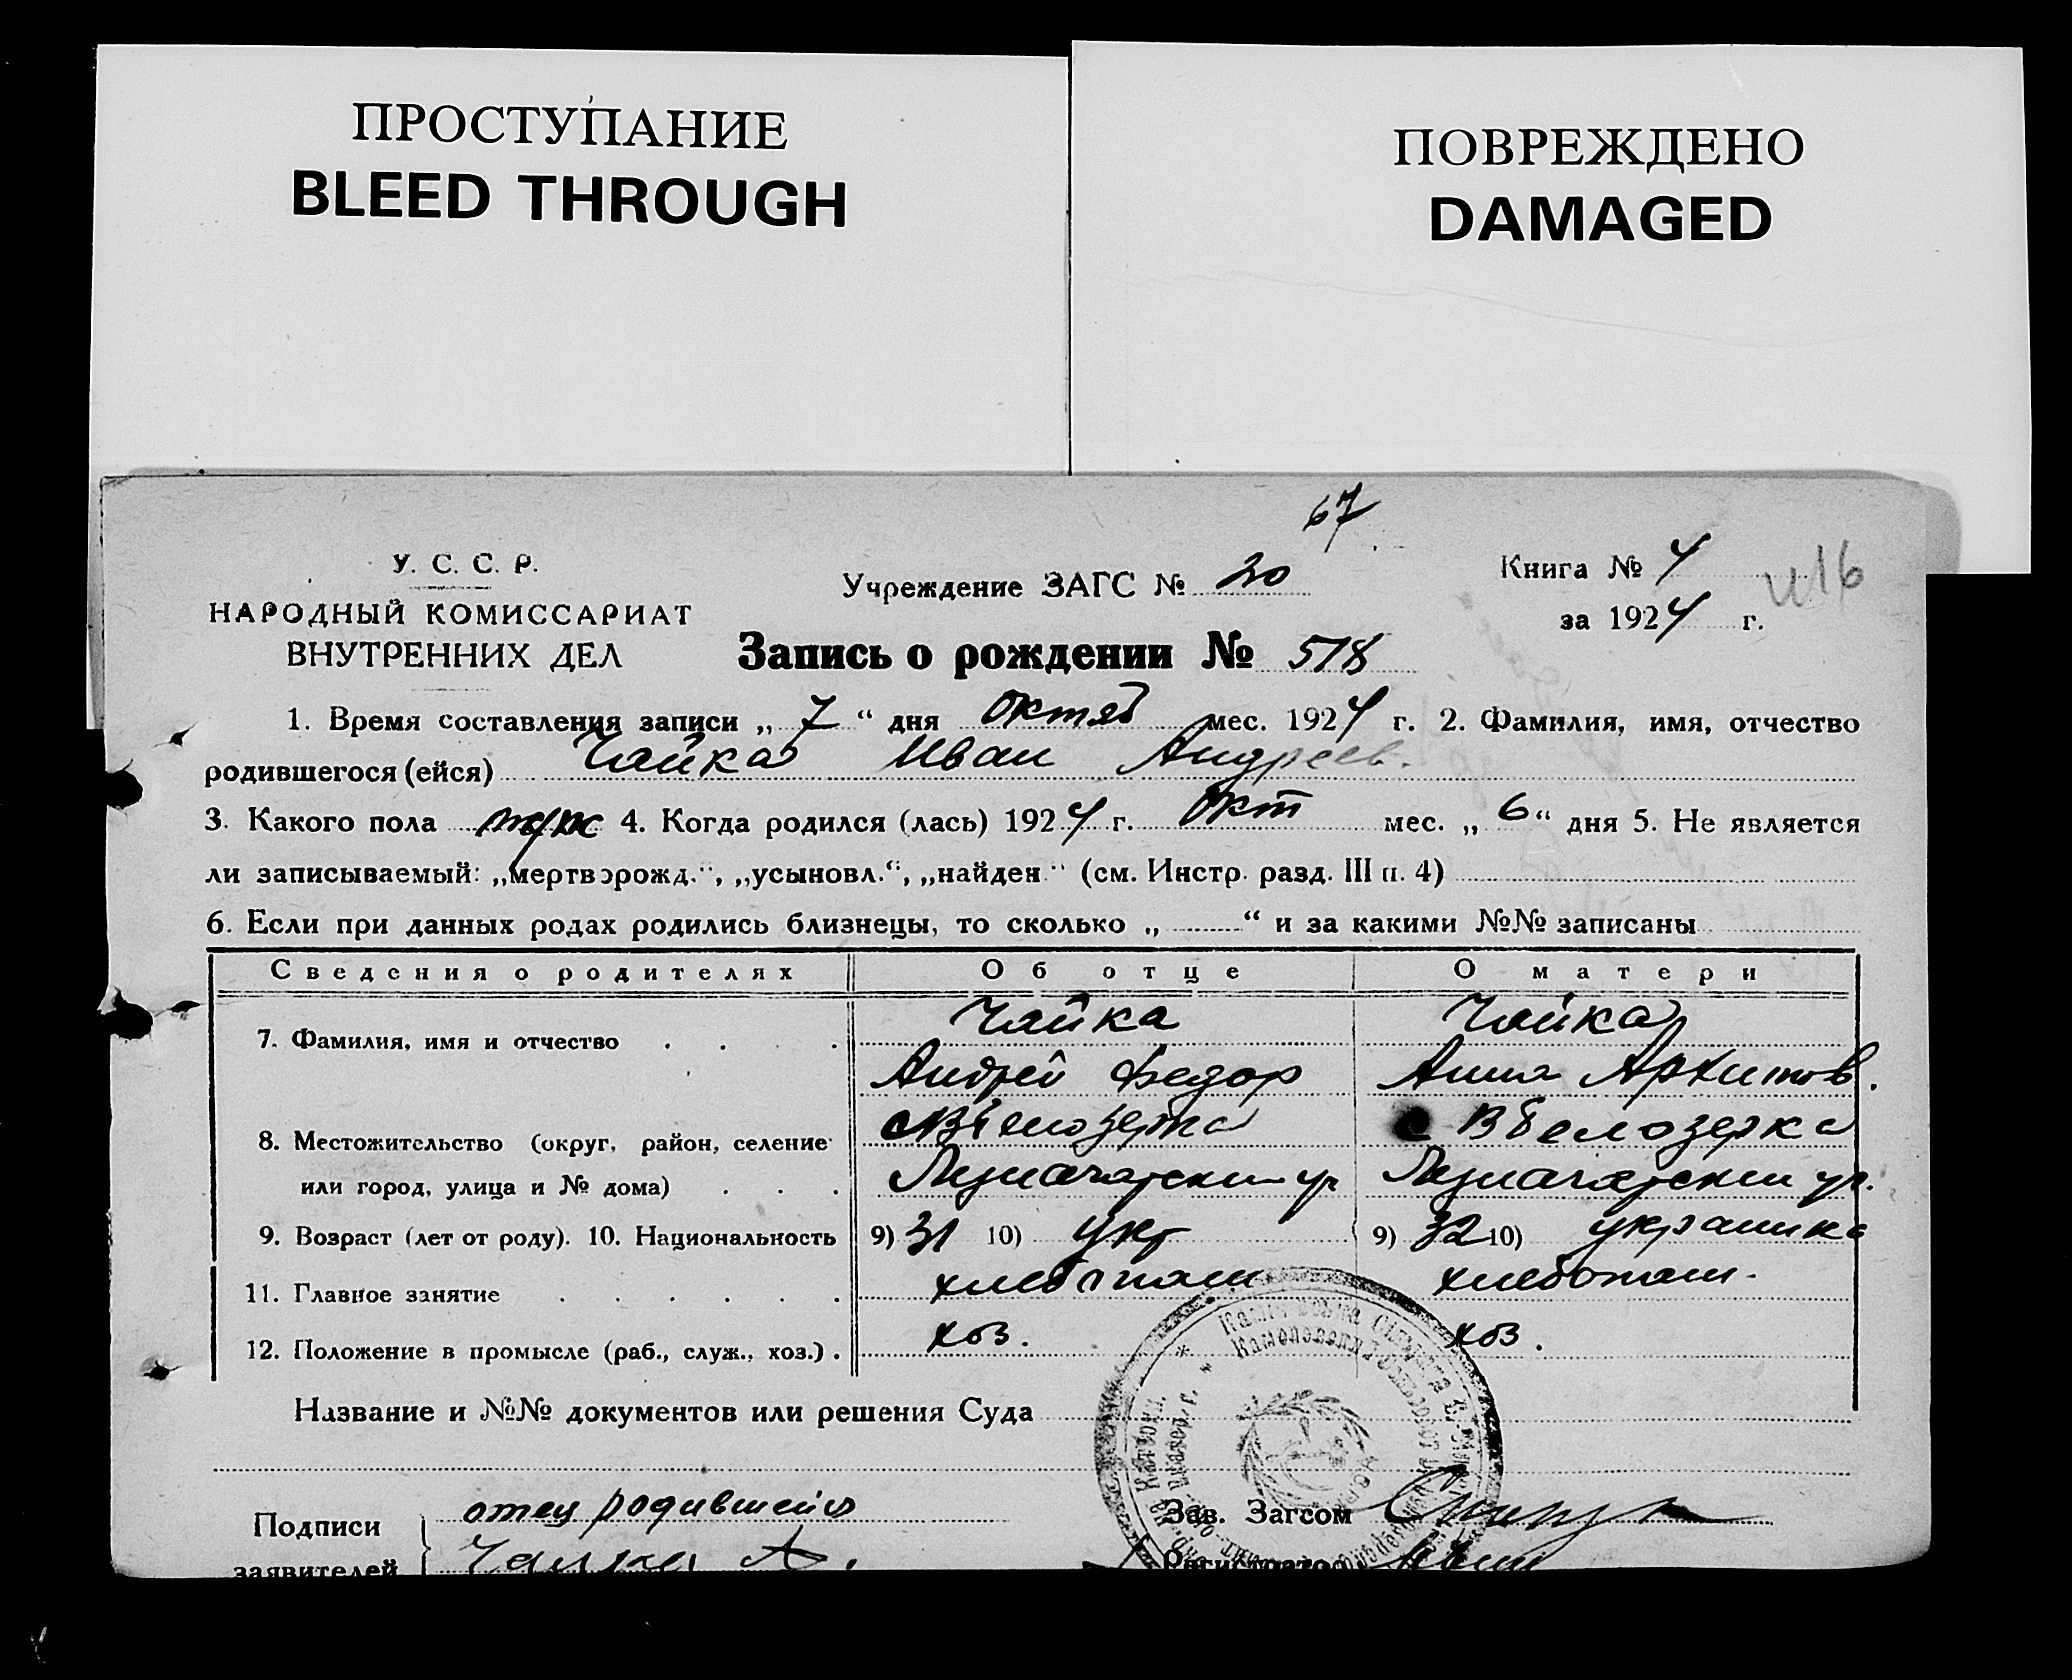 ПРОСТУПАНИЕ
BLEED THROUGH
ПОВРЕЖДЕНО
DAMAGED
67
У. С. С. Р.
НАРОДНЫЙ КОМИССАРИАТ
ВНУТРЕННИХ ДЕЛ
Учреждение ЗАГС № 20
Книга № 4
за 1924 г.
16
Запись о рождении № 518
1. Время составления записи „ 7 “ дня октяб мес. 1924 г. 2. Фамилия, имя, отчество
родившегося (ейся) Чайка Иван Андреев.
3. Какого пола муж 4. Когда родился (лась) 1924 г. Окт мес. „ 6 “ дня 5. Не является
ли записываемый: „мертворожд.“, „усыновл.“, „найден“ (см. Инстр. разд. III п. 4)
6. Если при данных родах родились близнецы, то сколько „ “ и за какими №№ записаны
Сведения о родителях Об отце О матери
Чайка Чайка
7. Фамилия, имя и отчество
Андрей Федор Анна Архипов.
8. Местожительство (округ, район, селение с В Белозерка
или город, улица и № дома)
9. Возраст (лет от роду). 10. Национальность 9) 31 10) укр 9) 32 10) украинка
11. Главное занятие хлебопаш хлебопаш.
12. Положение в промысле (раб., служ., хоз.) . хоз. хоз.
Название и №№ документов или решения Суда
Подписи отец родившейся
Зав. Загсом
заявителей Чайка А.
Регистратор